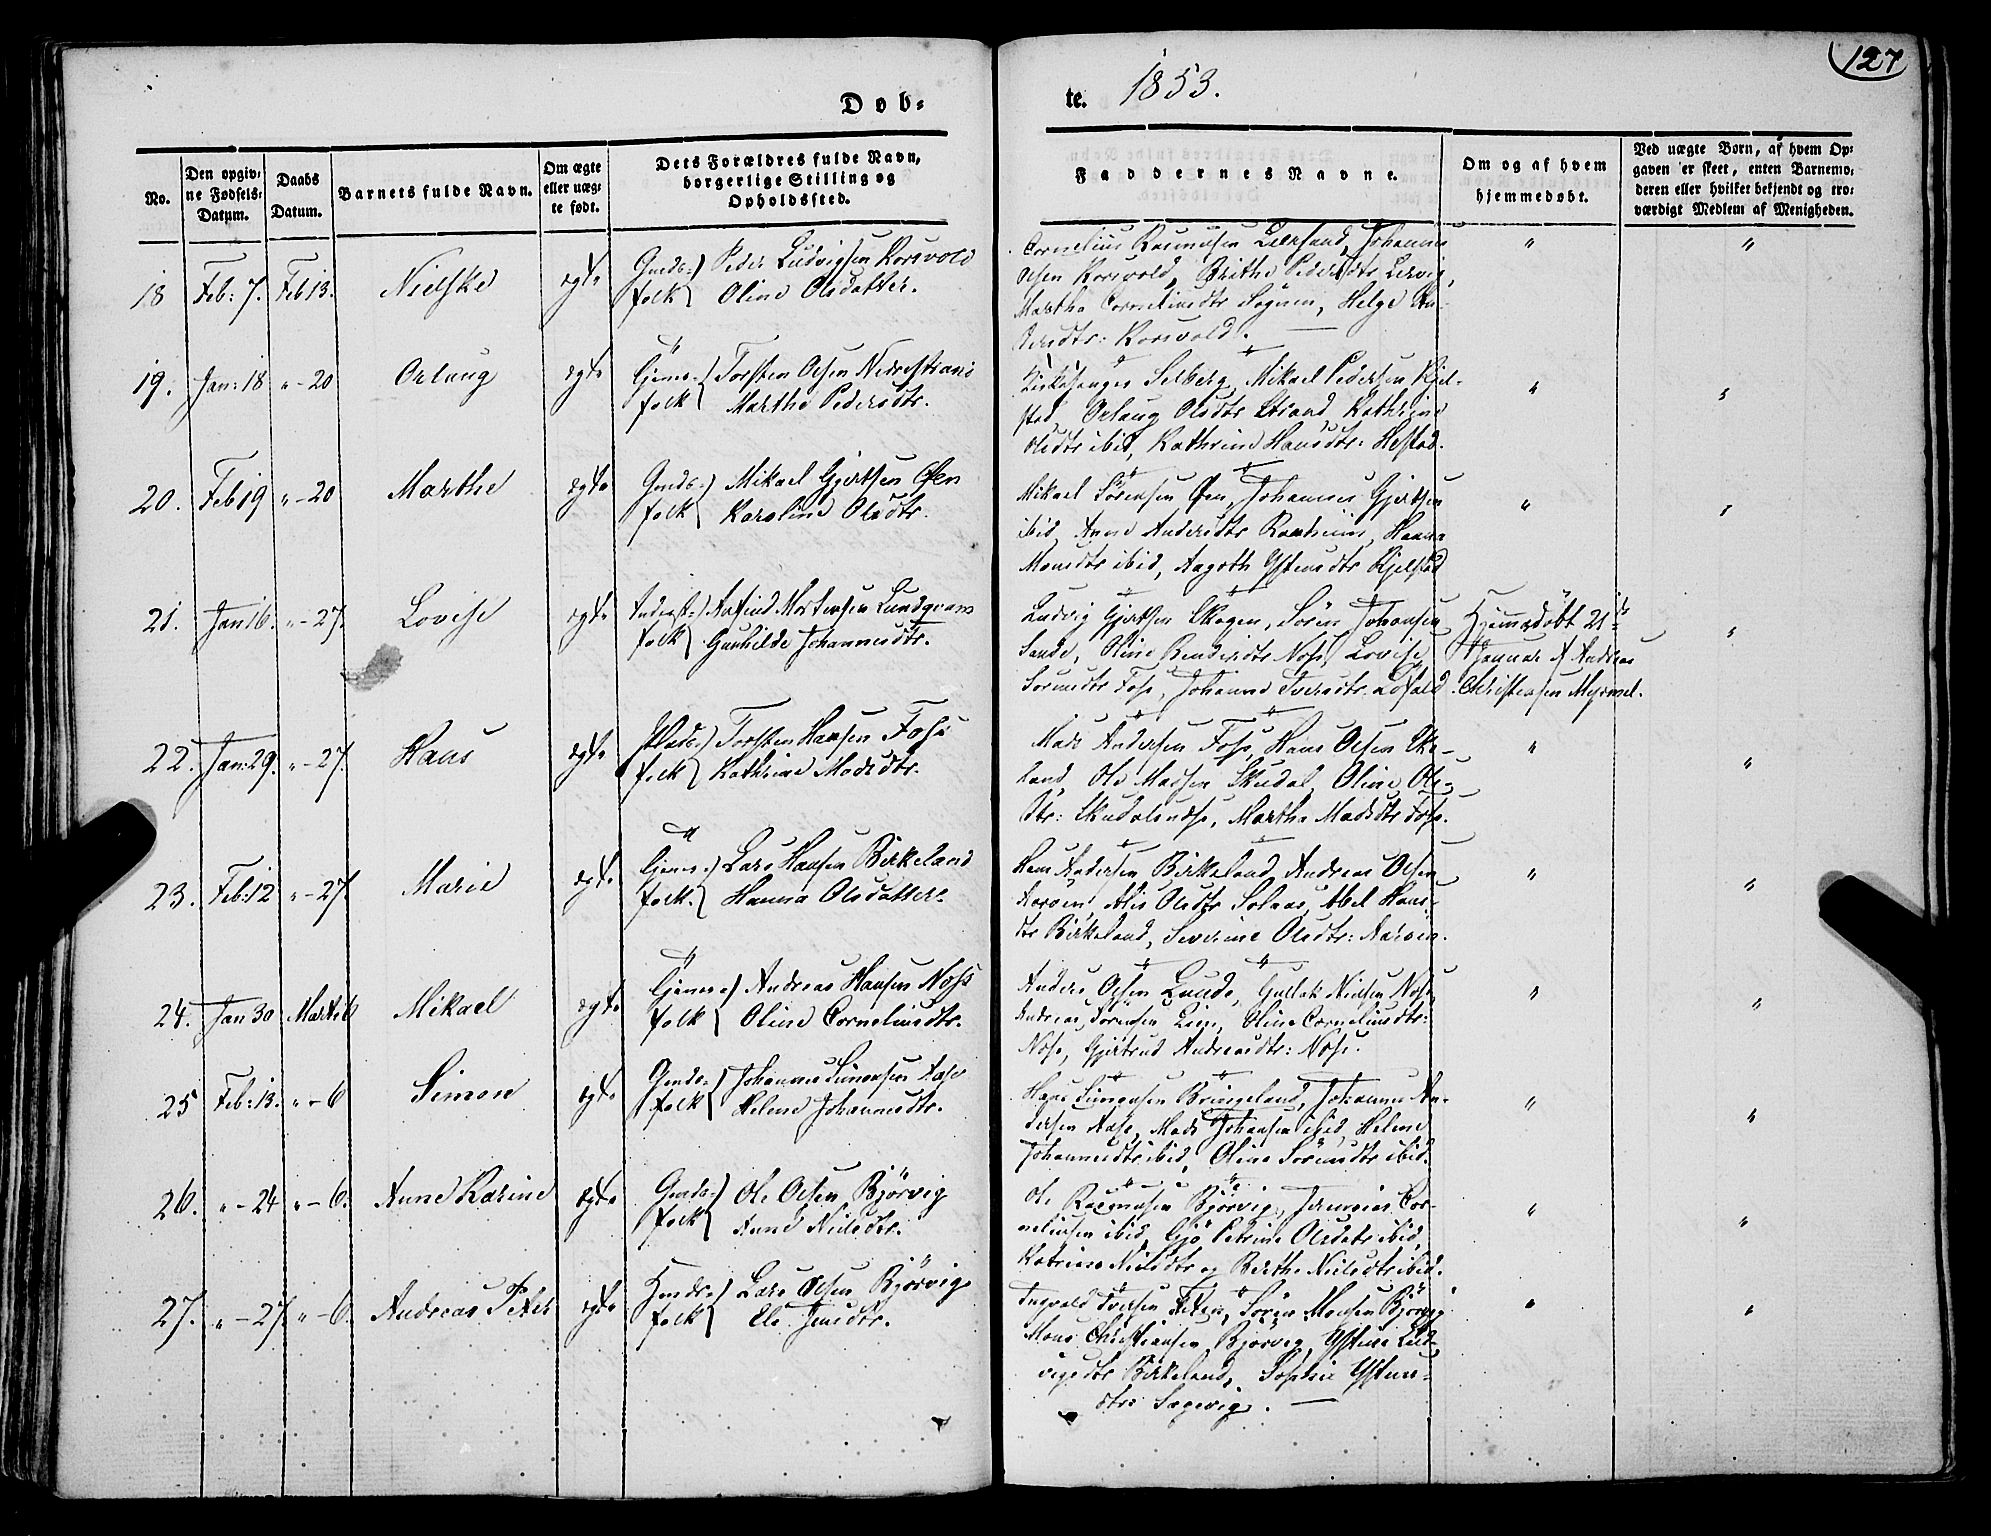 127
Døb-
te. 1853.
No.
Den opgiv-
ne Fødsels-
Datum.
Daabs
Datum.
Barnets fulde Navn.
Om ægte
eller uæg-
te født.
Dets Forældres fulde Navn,
borgerlige Stilling og
Opholdssted.
Faddernes Navne.
Om og af hvem
hjemmedøbt.
Ved uægte Børn, af hvem Op-
gaven er skeet, enten Barnemo-
deren eller hvilket bekjendt og tro-
værdigt Medlem af Menigheden.
18 Feb: 7. Feb 13. Nielske ægte Gmds- Peder Ludvigsen Korsvold
folk Oline Olsdatter.
Cornelius Rasmusen Leersand, Johannes
Olsen Korsvold, Brithe Pedersdtr Lervig,
Marthe Corneliusdtr Sognen, Helge An-
dersdtr: Korsvold. —
19. Jan: 18 " - 20 Orlaug ægte Tjenes- Torsten Olsen Nedrestrand
folk Marthe Pedersdtr.
Kirkesanger Selberg, Mikael Pedersen Kjel-
stad, Orlaug Olsdtr Strand, Kathrine
Olsdtr ibid, Kathrine Hansdtr: Hestad.
20. Feb 19 " - 20 Marthe ægte Gmds- Mikael Gjertsen Øen
folk Karoline Olsdtr.
Mikael Sørensen Øen, Johannes Gjertsen
ibid, Anne Andersdtr, Hanna
Monsdtr ibid, Aagoth Ystensdtr Kjelstad
21. Jan 16. " - 27. Lovise ægte Inderst- Arfind Mortensen Lundqvam
folk Gunhilde Johannesdtr.
Ludvig Gjertsen Skogen, Sören Johansen
Sande, Oline Bendixdtr Nose, Lovise
Sörensdtr Foss, Johanne Iversdtr
Hjemmedöbt 21de
Januar af Andreas
Christensen Myrmel.
22. Jan: 29. " - 27. Hans ægte Plads- Torsten Hansen Foss
folk Kathrine Madsdtr.
Mads Andersen Foss, Hans Olsen Ske-
land, Ole Madsen Skudal, Oline Ols-
dtr: , Marthe Madsdtr Foss.
23. Feb: 12 " - 27. Marie ægte Tjenes- Lars Hansen Birkeland
folk. Hanna Olsdatter.
Hans Andersen Birkeland, Andreas Olsen
Aarøen, Alis Olsdtr Solaas, Abel Hans-
dtr Birkeland, Severine Olsdtr: Aarøen.
24. Jan 30 Marts 6 Mikael ægte Tjenes- Andreas Hansen Nose
folk Oline Corneliusdtr.
Anders Olsen Lunde, Gullak Nielsen Nose,
Andreas Sørensen Lien, Oline Corneliusdtr:
Nose, Gjertrud Andreasdtr: Nose.
25 Feb: 13. " - 6 Simon ægte Gmds- Johannes Simonsen Aase
folk Helene Johannesdtr.
Hans Simonsen Bringeland, Johannes An-
dersen Aase, Mads Johansen ibid, Helene
Johannesdtr ibid, Oline Sörensdtr ibid.
26. " - 24 " - 6. Anne Karine ægte Gmds- Ole Olsen Björvig
folk Anne Nielsdtr.
Ole Rasmusen Björvig, Jeremias Cor-
neliusen ibid, Gjö Petrine Olsdatr ibid,
Katrine Nielsdtr og Berthe Nielsdtr ibid.
27. " - 27. " - 6. Andreas Peter ægte Hmds- Lars Olsen Björvig
folk Eli Jensdtr.
Ingvald Iversen Teten, Sören Monsen Björvig
Mons Christiansen Björvig, Ystine Lud-
vigsdtr Birkeland, Sophie Ystens-
dtr Sagevig. —